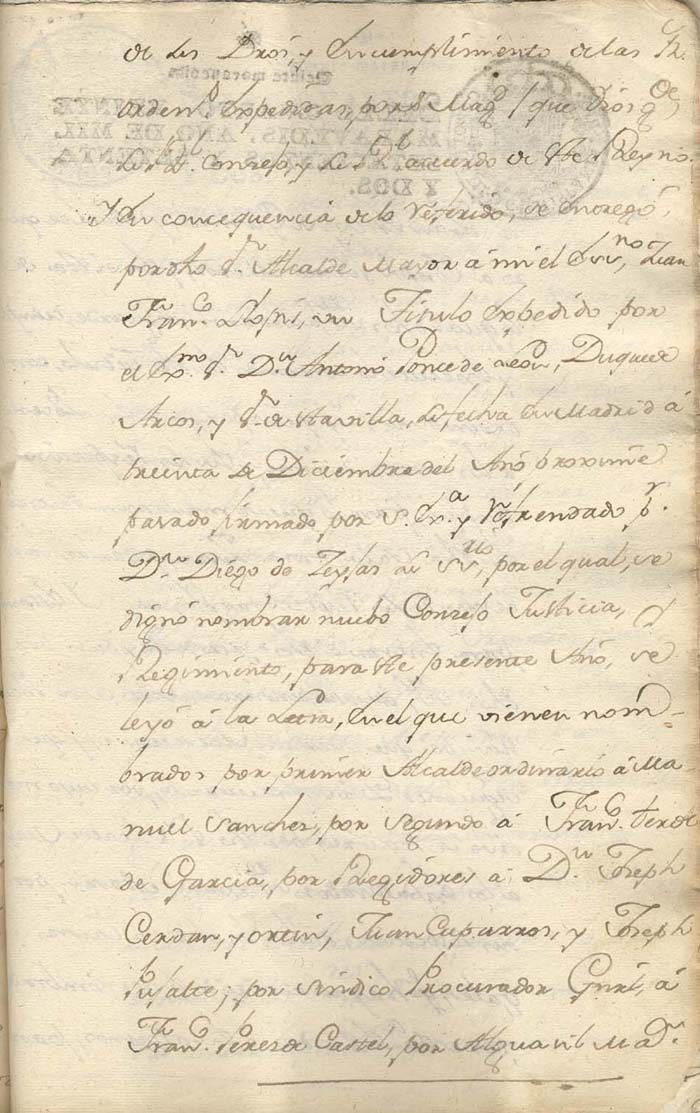 de los Dros, y en cumplimiento de las Rs.
ordens. expedidas, por su Magd. (que Dios gde.)
Rl. Consejo, y Rl. acuerdo de este Reyno.
Y en concequencia de lo referido, se entregó,
por dho Sr. Alcalde Mayor á mi el Essno, Juan
Franco. Llopis, un Titulo expedido por
el Exmo. Sr. Dn. Antonio Ponce de Leon, Duque de
Arcos, y Sr. de esta villa, su fecha en Madrid á
treinta de Diciembre del Año proximo
pasado, firmado por S. Exa. y refrendado pr.
Dn. Diego de su Ssrio, por el qual, se
dignó nombrar nuebo Consejo Justicia, y
Regimiento, para este presente Año, se
leyó á la Letra, en el que vienen nom-
brados por primer Alcalde ordinario á Ma-
nuel Sanchez, por segundo á Franco.
de Garcia, por Regidores á Dn. Joseph
Cerdan, y ortin, Juan Caparros, y Joseph
Pujalte; por sindico Procurador Gnrl, á
Franco. Perez de Castel, por Alguacil Mayr.